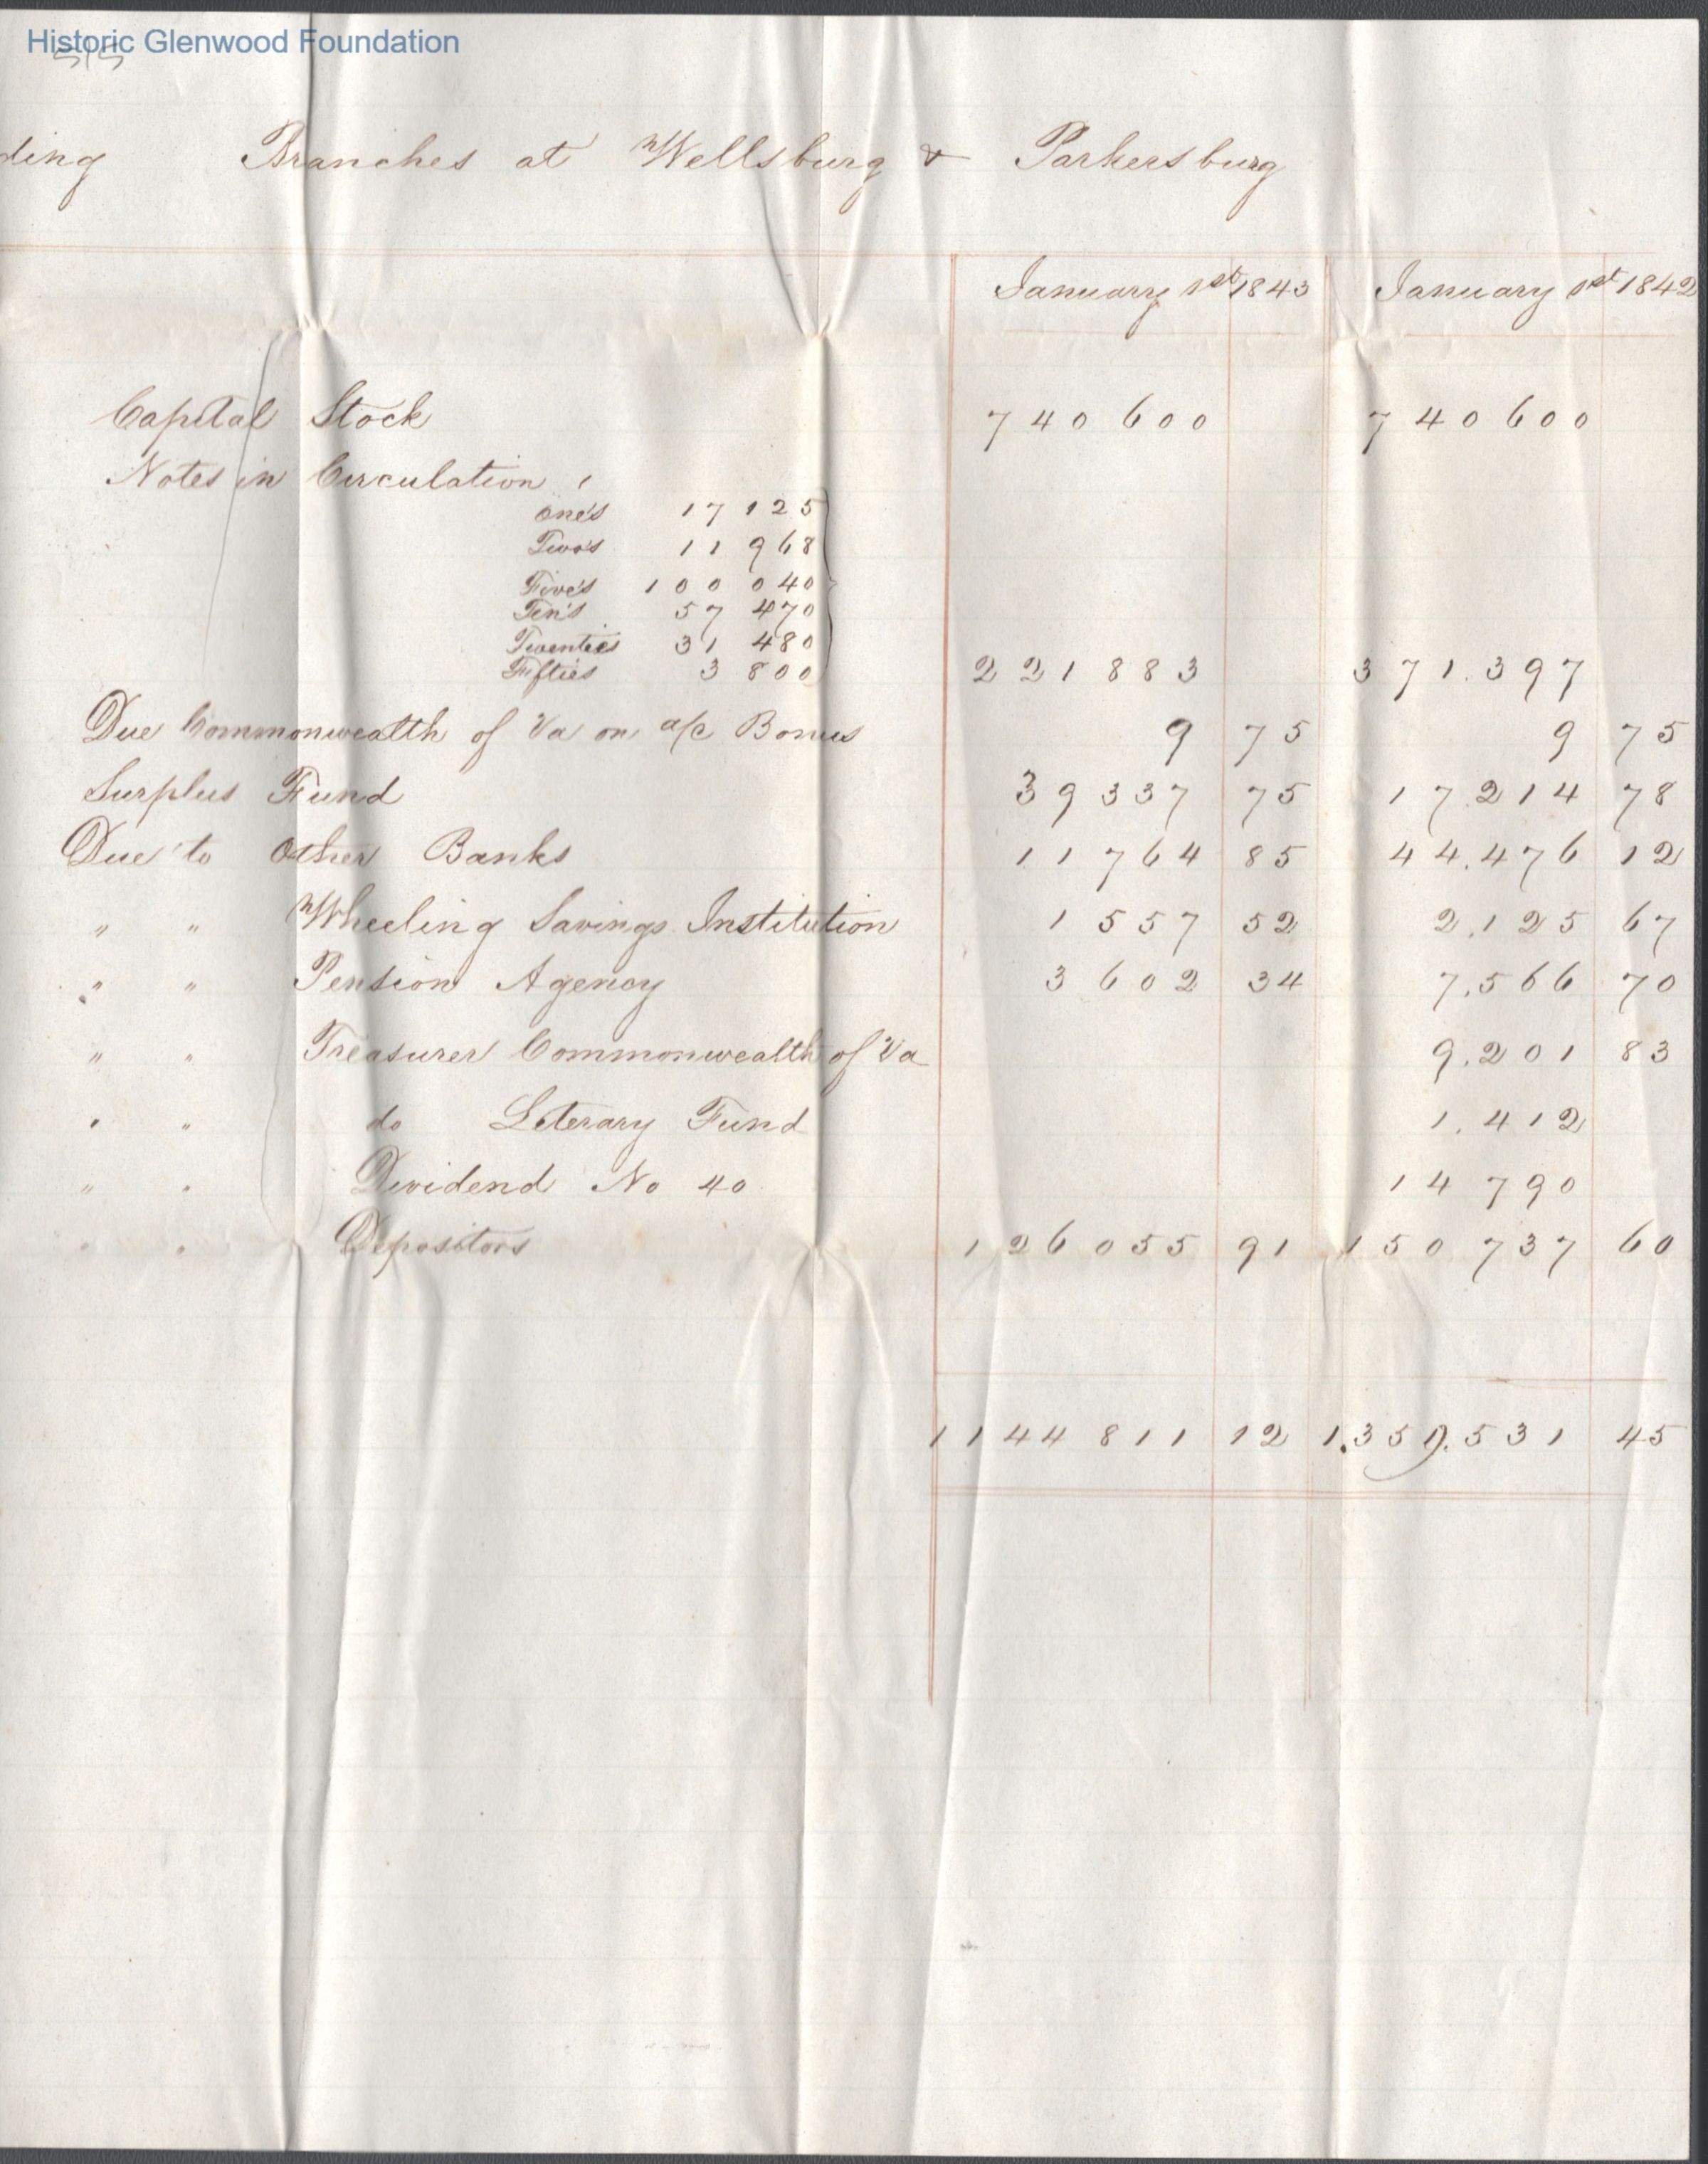 Historic Glenwood Foundation
515
ding Branches at Wellsburg & Parkersburg
January 1st 1843 January 1st 1842
Capital Stock 740 600 740 600
Notes in Circulation,
one's 17 125
Two's 11 968
Five's 100 040
Ten's 57 470
Twenties 31 480
Fifties 3 800 221 883 371.397
Due Commonwealth of Va on a/c Bonus 9 75 9 75
Surplus Fund 39 337 75 17.214 78
Due to Other Banks 11 764 85 44.476 12
" " Wheeling Savings Institution 1 557 52 2.125 67
" " Pension Agency 3 602 34 7.566 70
" " Treasurer Commonwealth of Va 9.201 83
" " do Literary Fund 1.412
" " Dividend No 40 14 790
" " Depositors 126 055 91 150 737 60
1144 811 12 1.359.531 45